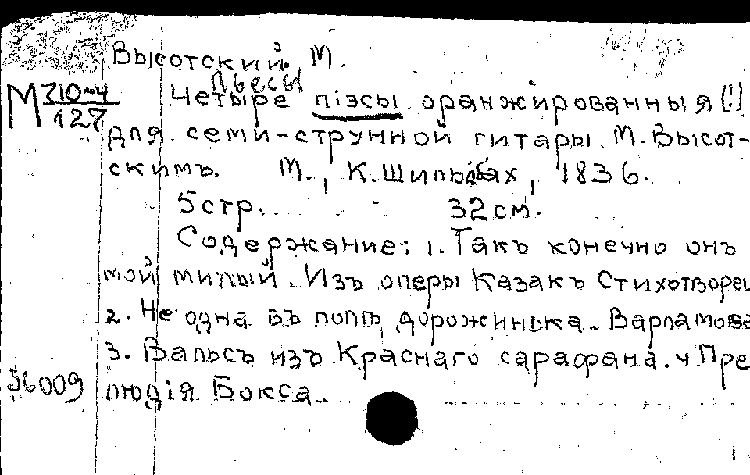 Высотский, М.
пьесы
М 210-4
127
Четыре піэсы оранжированныя [!]
для семи-струнной гитары М. Высот-
скимъ. М., К. Шильдбах, 1836.
5 стр. 32 см.
Содержание: 1. Такъ конечно онъ
мой милый. Изъ оперы Казакъ Стихотворец
2. Не одна въ полѣ дорожинька. Варламова
3. Вальсъ изъ Краснаго сарафана. 4 Пре
36009
людія Бокса.